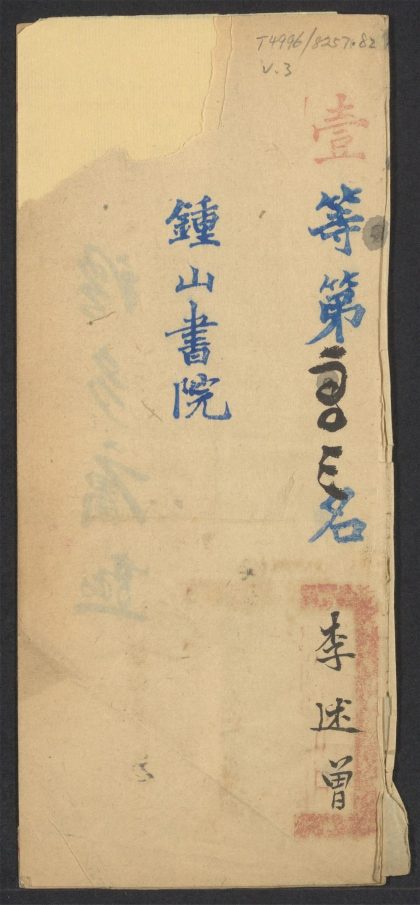 T4996/8257.82
v.3
壹等第
名
李述曾
鍾山書院